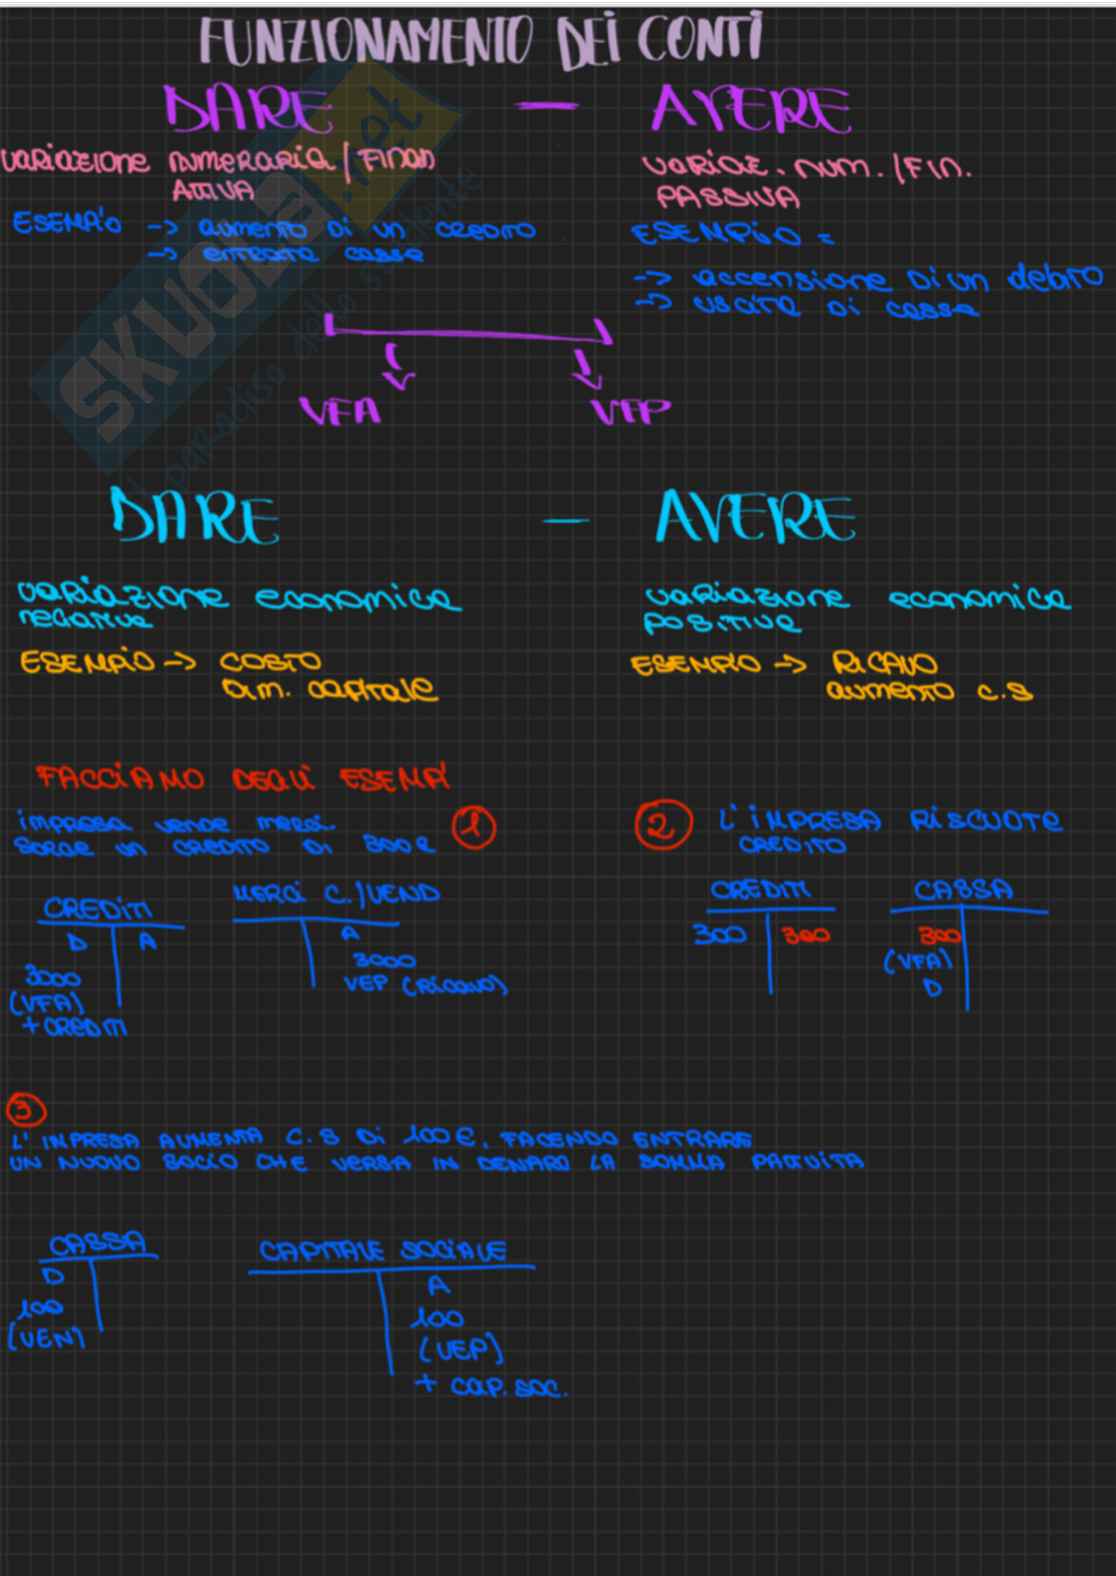 FUNZIONAMENTO DEI CONTI
DARE — AVERE
VARIAZIONE NUMERARIA / FINAN
ATTIVA
VARIAZ. NUM. / FIN.
PASSIVA
ESEMPIO -> aumento di un credito
-> entrata cassa
ESEMPIO =
-> accensione di un debito
-> uscita di cassa
VFA
VFP
DARE — AVERE
variazione economica
negativa
variazione economica
positiva
ESEMPIO -> COSTO
Dim. capitale
ESEMPIO -> RICAVO
aumento c.s
FACCIAMO DEGLI ESEMPI
impresa vende merci.
Sorge un credito di 300€
1
2
L'IMPRESA RISCUOTE
CREDITO
CREDITI
D A
3000
(VFA)
+ CREDITI
MERCI C./VEND
A
3000
VEP (Ricavo)
CREDITI
300 300
CASSA
300
(VFA)
D
3
L'IMPRESA AUMENTA C.S DI 100€, FACENDO ENTRARE
UN NUOVO SOCIO CHE VERSA IN DENARO LA SOMMA PATTUITA
CASSA
D
100
(VEN)
CAPITALE SOCIALE
A
100
(VEP)
+ cap. soc.
SKUOLA.net
il paradiso dello studente